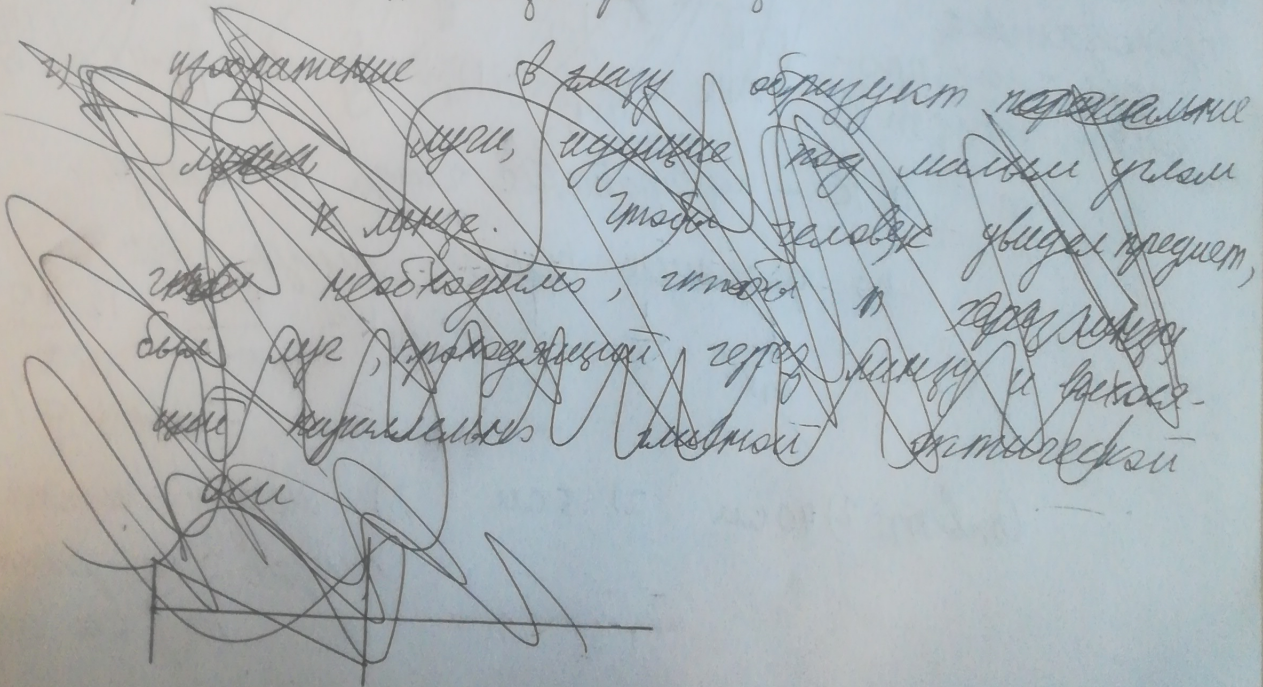 г) изображение в глазу образуют
лучи, идущие под малым углом
к линзе. Чтобы человек увидел предмет,
необходимо, чтобы через линзу
был луч, проходящий через линзу и выходя-
щий параллельно главной оптической
оси